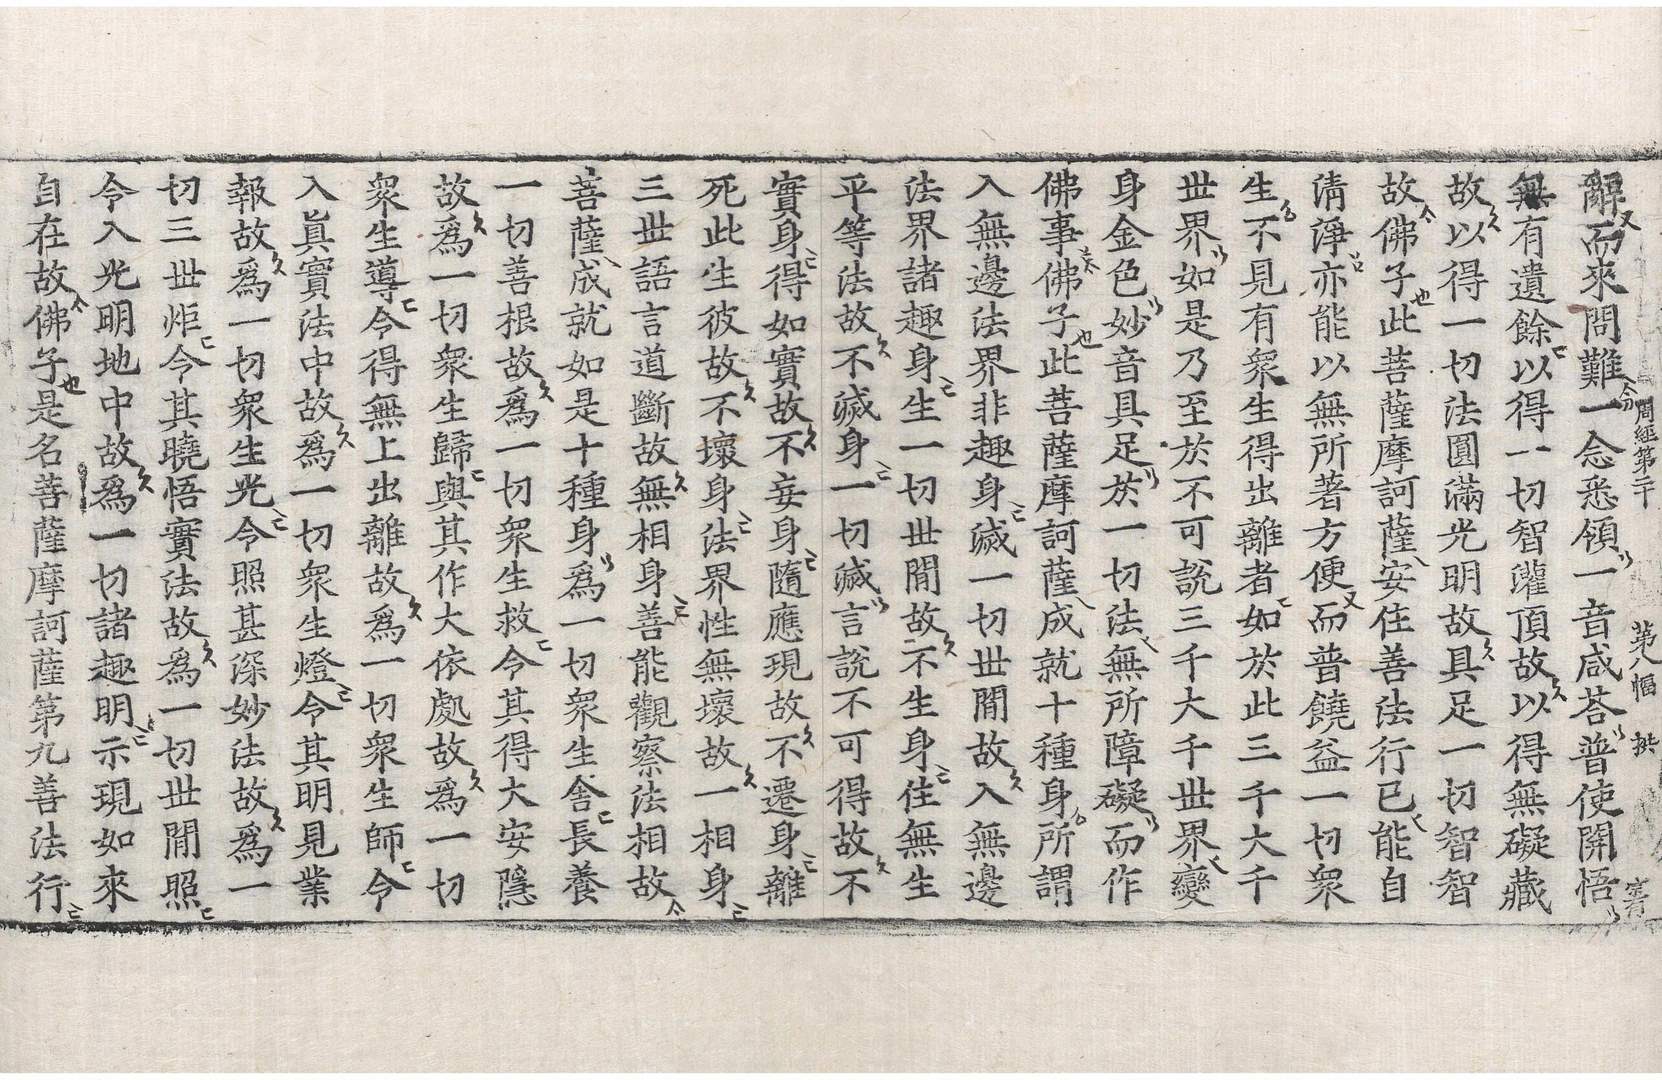 辭而來問難一念悉領一音咸荅普使開悟
無有遺餘以得一切智灌頂故以得無礙藏
故以得一切法圓滿光明故具足一切智智
故佛子此菩薩摩訶薩安住善法行已能自
清淨亦能以無所著方便而普饒益一切衆
生不見有衆生得出離者如於此三千大千
世界如是乃至於不可說三千大千世界變
身金色妙音具足於一切法無所障礙而作
佛事佛子此菩薩摩訶薩成就十種身所謂
入無邊法界非趣身滅一切世間故入無邊
法界諸趣身生一切世間故不生身住無生
平等法故不滅身一切滅言說不可得故不
實身得如實故不妄身隨應現故不遷身離
死此生彼故不壞身法界性無壞故一相身
三世語言道斷故無相身善能觀察法相故
菩薩成就如是十種身爲一切衆生舍長養
一切善根故爲一切衆生救令其得大安隱
故爲一切衆生歸與其作大依處故爲一切
衆生導令得無上出離故爲一切衆生師令
入眞實法中故爲一切衆生燈令其明見業
報故爲一切衆生光令照甚深妙法故爲一
切三世炬令其曉悟實法故爲一切世間照
令入光明地中故爲一切諸趣明示現如來
自在故佛子是名菩薩摩訶薩第九善法行
周經第二十　第八幅